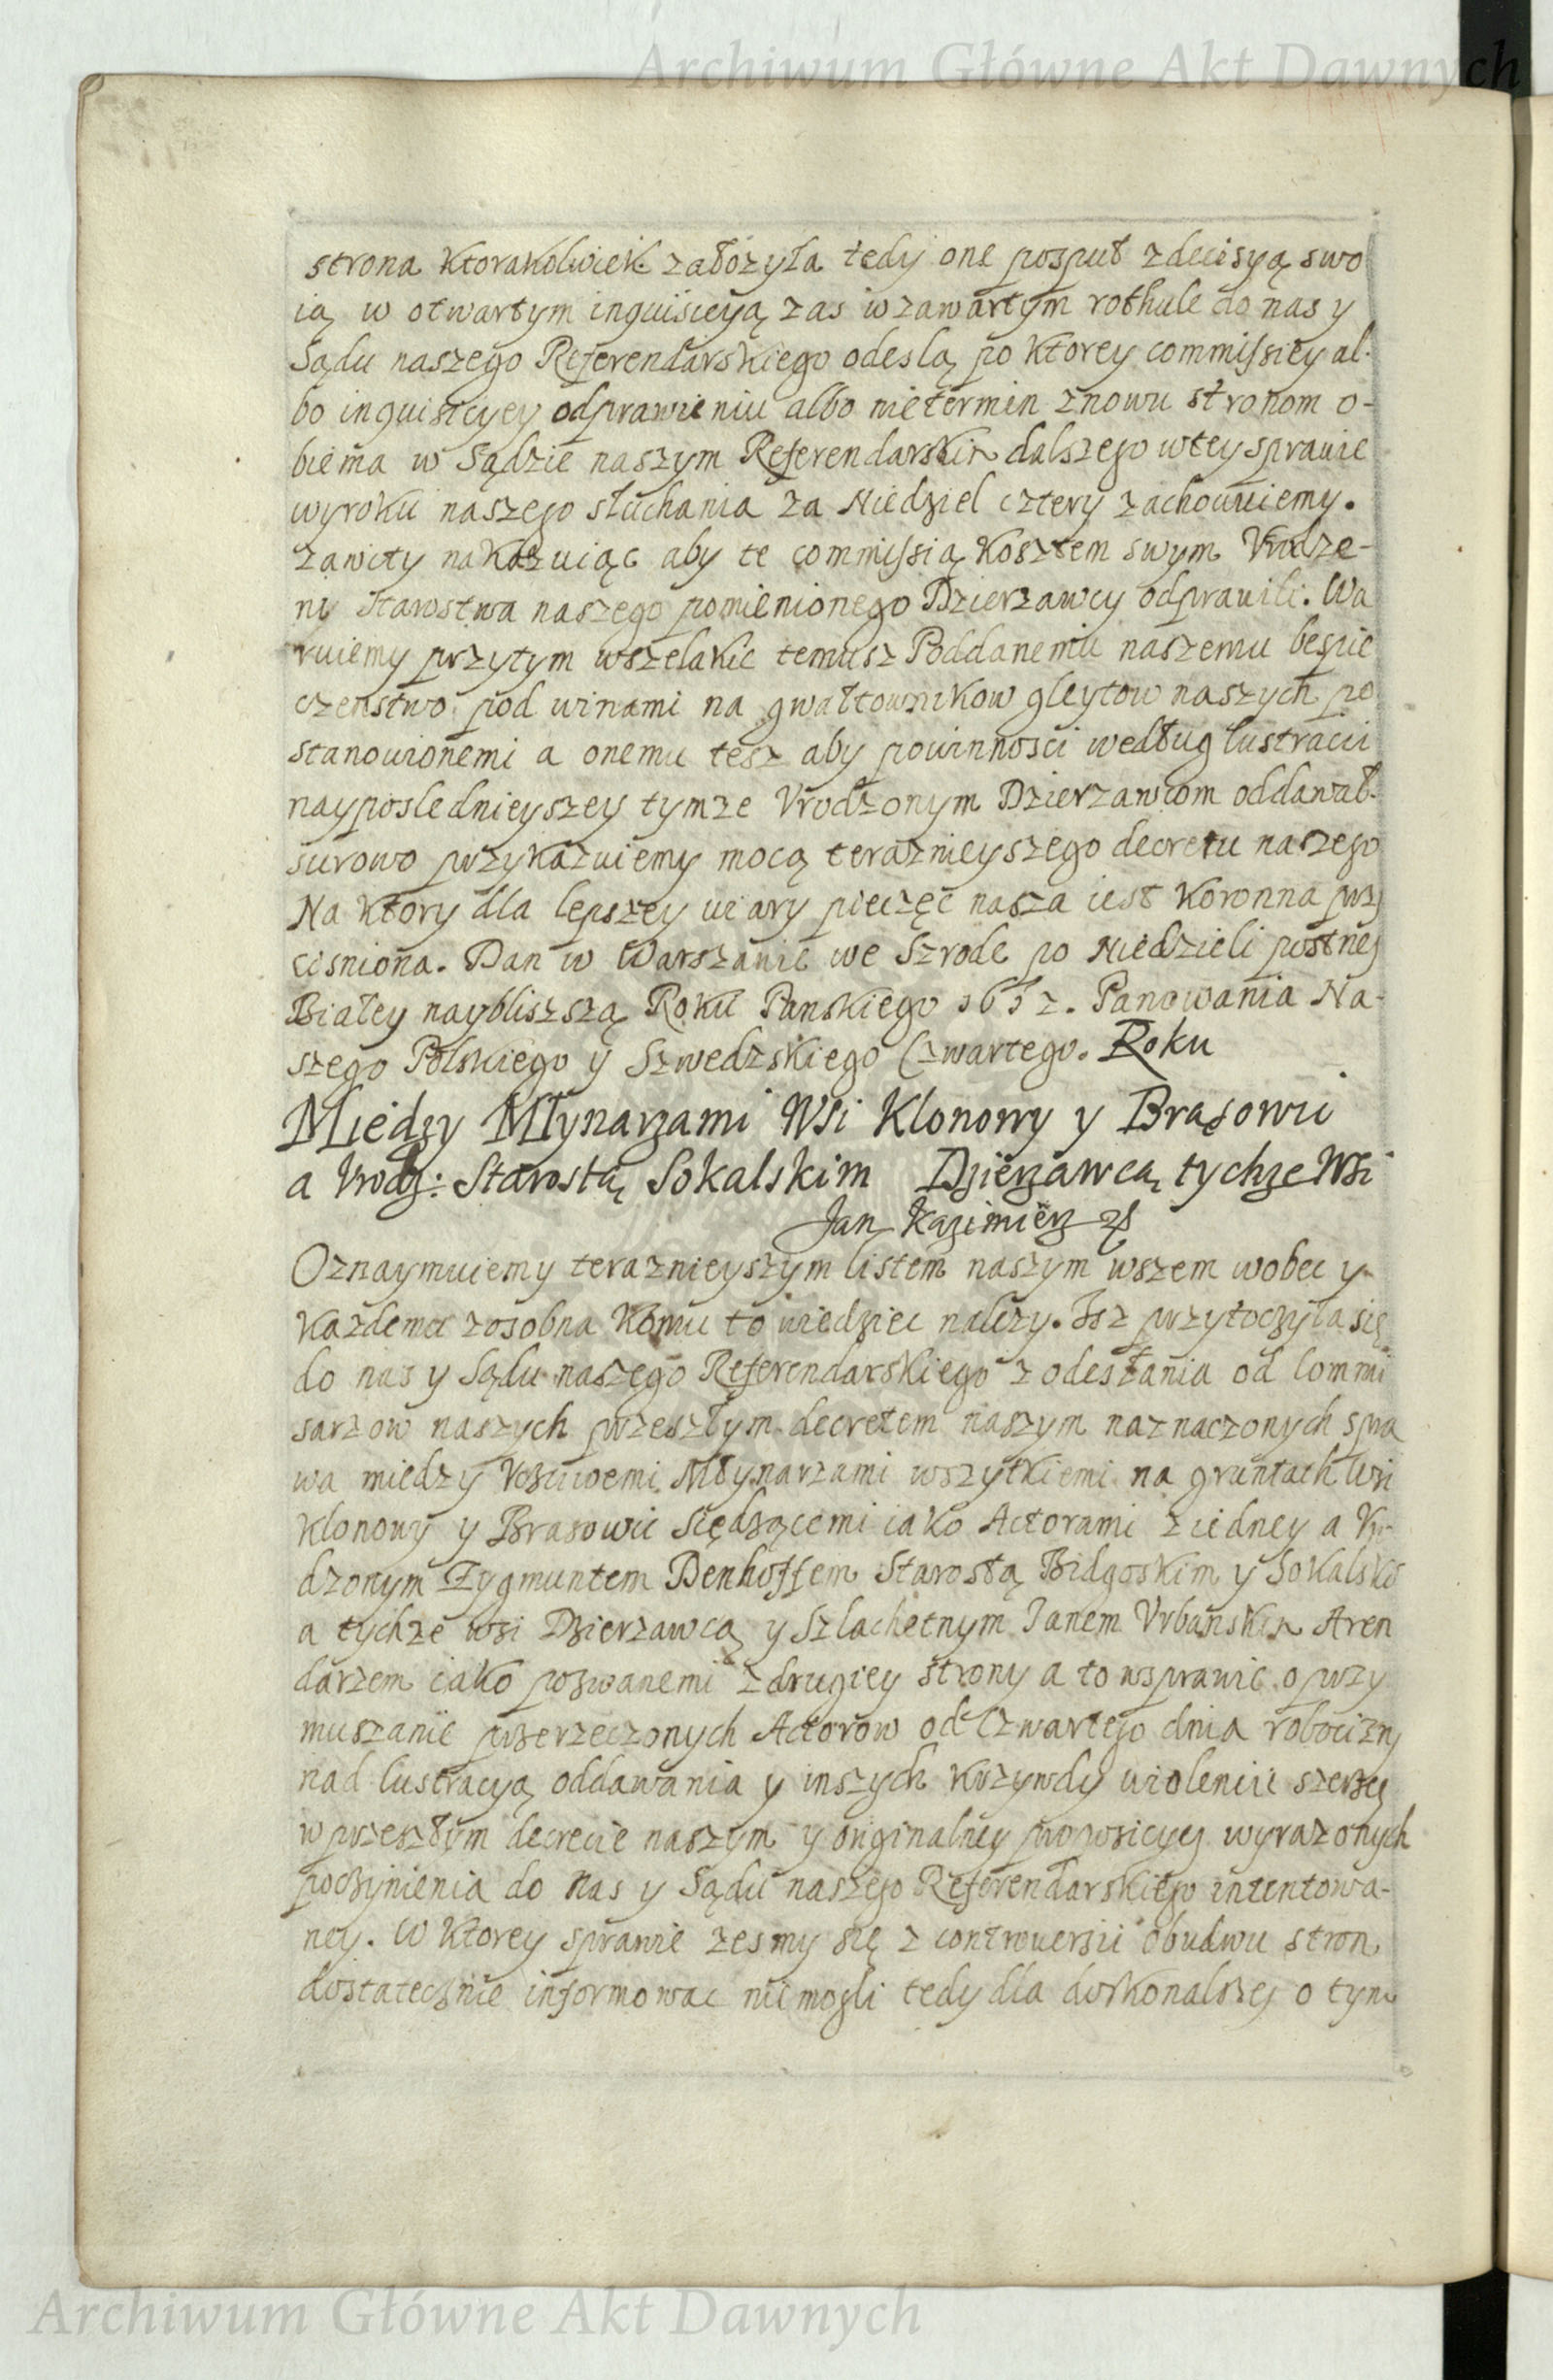 Archiwum Główne Akt Dawnych
strona ktorakolwiek załozyła tedy one pospuł z decisyą swo
ią w otwartym inquisicyą zas w zawartym rothule do nas y
Sądu naszego Referendarskiego odeslą po ktorey commissiey al-
bo inquisicyey odprawieniu albo nie termin znowu stronom o-
biema w Sądzie naszym Referendarskim dalszego w tey sprawie
wyroku naszego słuchania za Niedziel cztery zachowuiemy.
zawity nakazuiąc aby te commissią kosztem swym Vrodze-
ni Starostwa naszego pomienionego Dzierzawcy odprawili. Wa
ruiemy przytym wszelakie temusz Poddanemu naszemu bespie
czenstwo pod winami na gwałtownikow gleytow naszych po
stanowionemi a onemu tesz aby powinnosci według lustracii
nayposlednieyszey tymze Vrodzonym Dzierzawcom oddawał.
surowo przykazuiemy mocą teraznieyszego decretu naszego
Na ktory dla lepszey wiary pieczęć nasza iest Koronna przy
cisniona. Dan w Warszawie we Szrode po Niedzieli postney
Białey naybliszszą Roku Panskiego 1652. Panowania Na-
szego Polskiego y Szwedzskiego Czwartego. Roku
Miedzy Młynarzami Wsi Klonowy y Brąsowii
a Vrodz: Starostą Sokalskim Dzierzawcą tychze Wsi
Jan Kazimierz
Oznaymuiemy teraznieyszym listem naszym wszem wobec y
kazdemu zosobna komu to wiedziec nalezy. Isz przytoczyła się
do nas y Sądu naszego Referendarskiego z odesłania od Commi
sarzow naszych przeszłym decretem naszym naznaczonych spra
wa miedzy Vczciwemi Młynarzami wszytkiemi na gruntach Wsi
Klonowy y Brasowii siędzącemi iako Actorami z iedney a Vro-
dzonym Zygmuntem Denhoffem Starostą Bidgoskim y Sokalskim
a tychze wsi Dzierzawcą y Szlachetnym Janem Vrbanskim Aren
darzem iako pozwanemi z drugiey strony a to w sprawie o przy
muszanie przerzeczonych Actorow od Czwartego dnia robocizny
nad lustracyą oddawania y inszych krzywdy violencii szerzey
w przeszłym decrecie naszym y originalney propozicyey wyrazonych
poczynienia do nas y Sądu naszego Referendarskiego intentowa-
ney. W ktorey sprawie zesmy się z controuersii obudwu stron
dostatecznie informowac nie mogli tedy dla doskonalszey o tym
Archiwum Główne Akt Dawnych